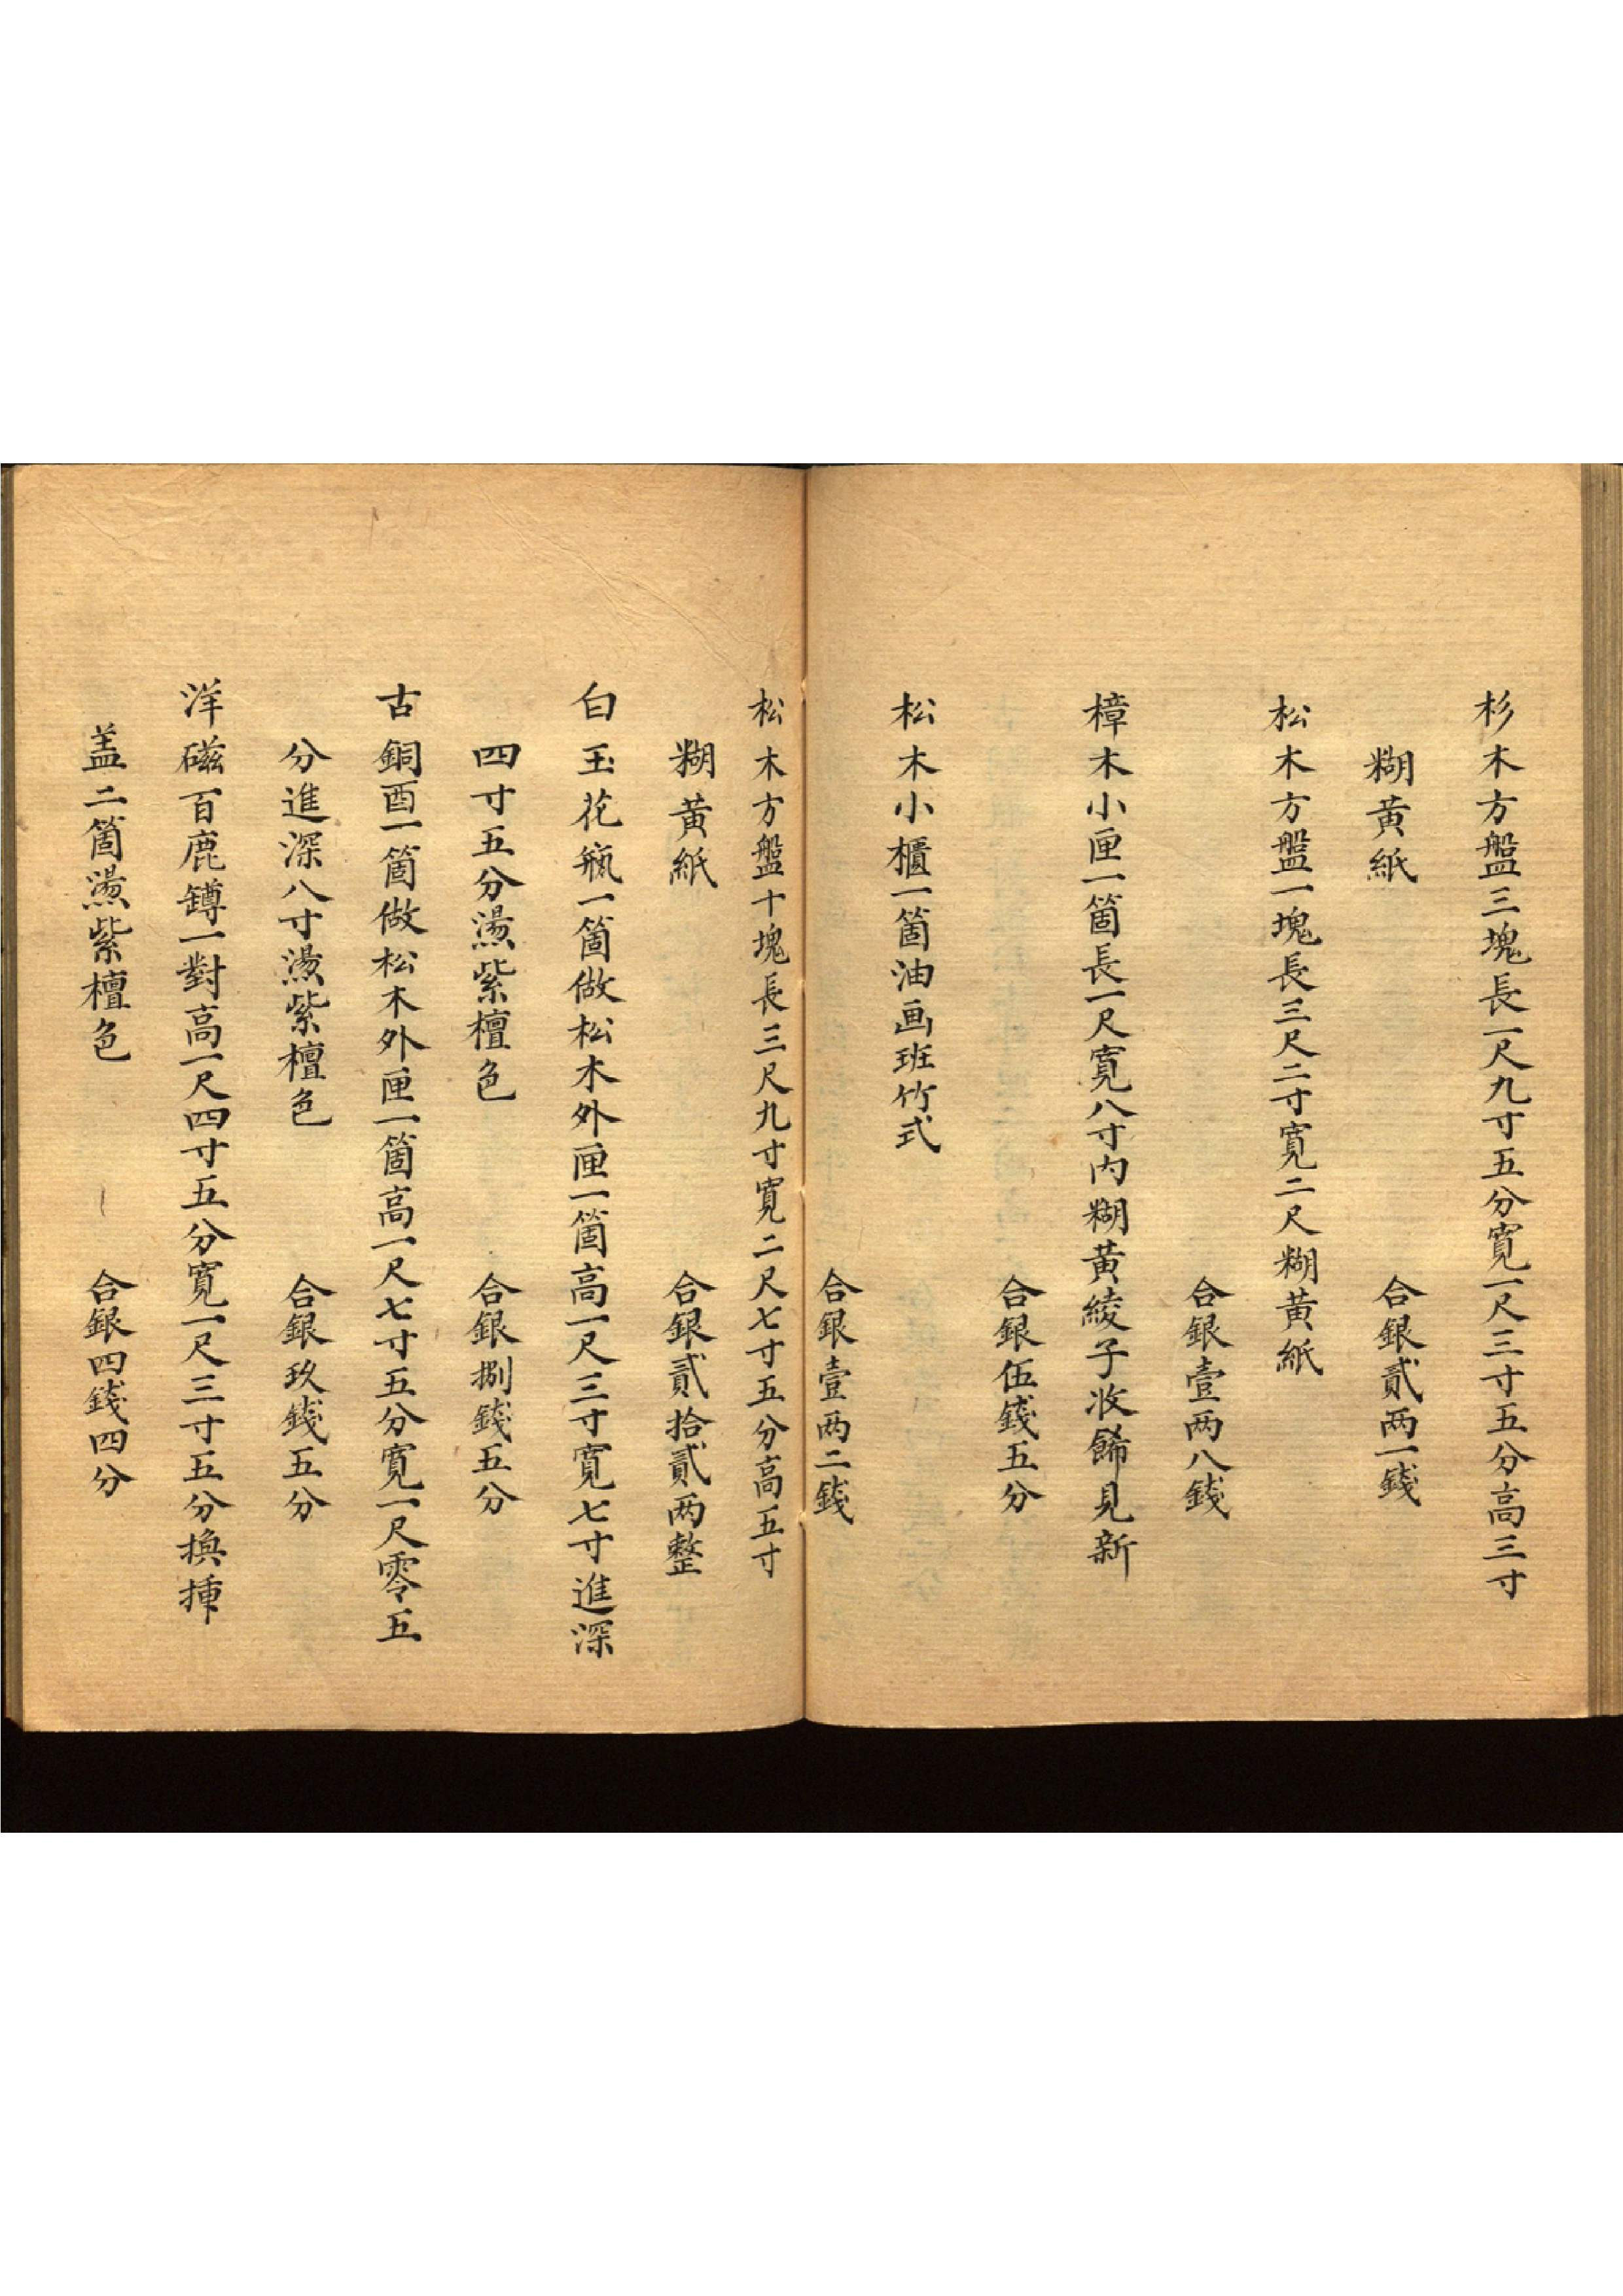 杉木方盤三塊長一尺九寸五分寬一尺三寸五分高三寸
糊黃紙　合銀貳两一錢
松木方盤一塊長三尺二寸寬二尺糊黃紙
合銀壹两八錢
樟木小匣一箇長一尺寬八寸內糊黃綾子收餙見新
合銀伍錢五分
松木小櫃一箇油画班竹式
合銀壹两二錢
松木方盤十塊長三尺九寸寬二尺七寸五分高五寸
糊黃紙　合銀貳拾貳两整
白玉花瓶一箇做松木外匣一箇高一尺三寸寬七寸進深
四寸五分燙紫檀色　合銀捌錢五分
古銅酉一箇做松木外匣一箇高一尺七寸五分寬一尺零五
分進深八寸燙紫檀色　合銀玖錢五分
洋磁百鹿罇一對高一尺四寸五分寬一尺三寸五分換揷
盖二箇燙紫檀色　合銀四錢四分